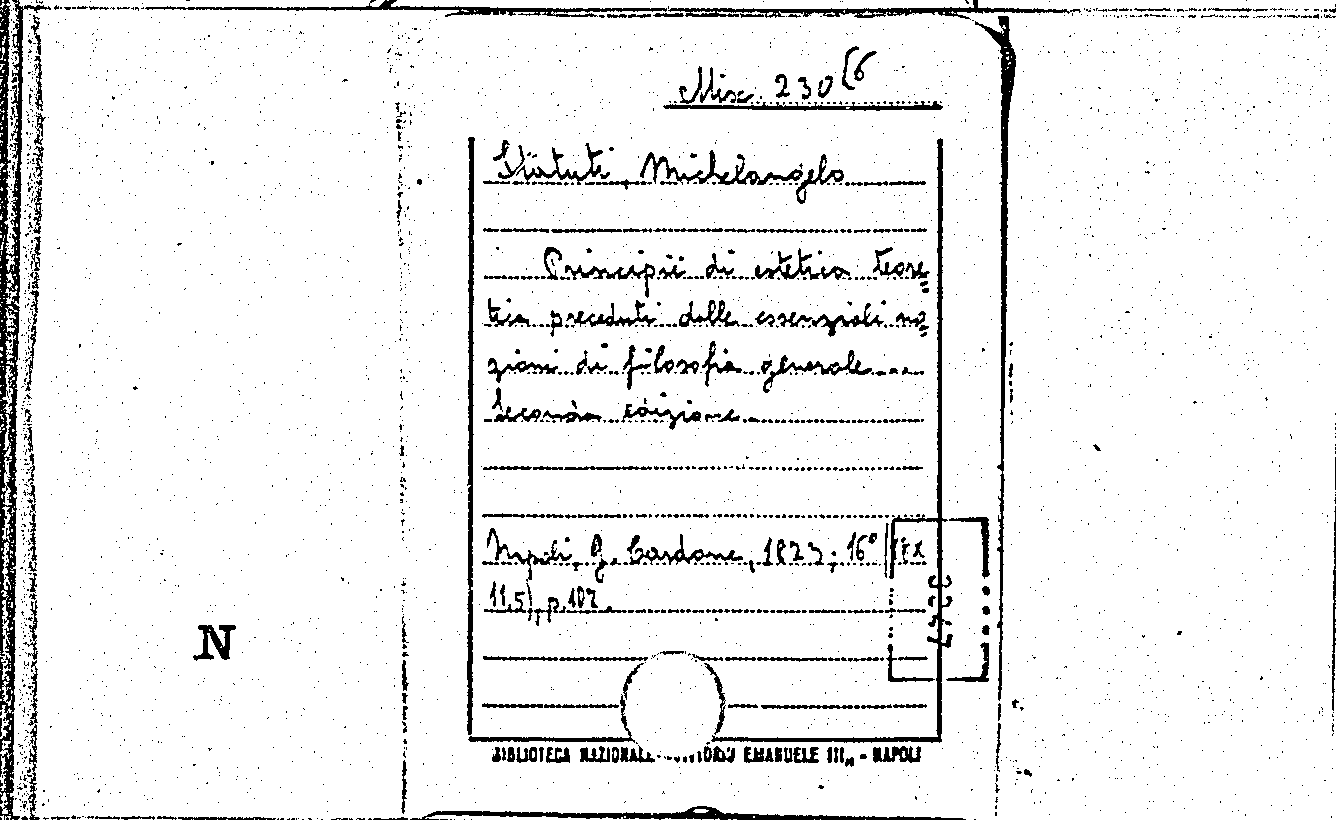 Misc. 230(6
Statuti, Michelangelo
Principii di estetica teore
tica preceduti dalle essenziali no
zioni di filosofia generale....
Seconda edizione.
Napoli, G. Cardone, 16°
11,5), p. 107.
N
BIBLIOTECA NAZIONALE EMANUELE III„ - NAPOLI